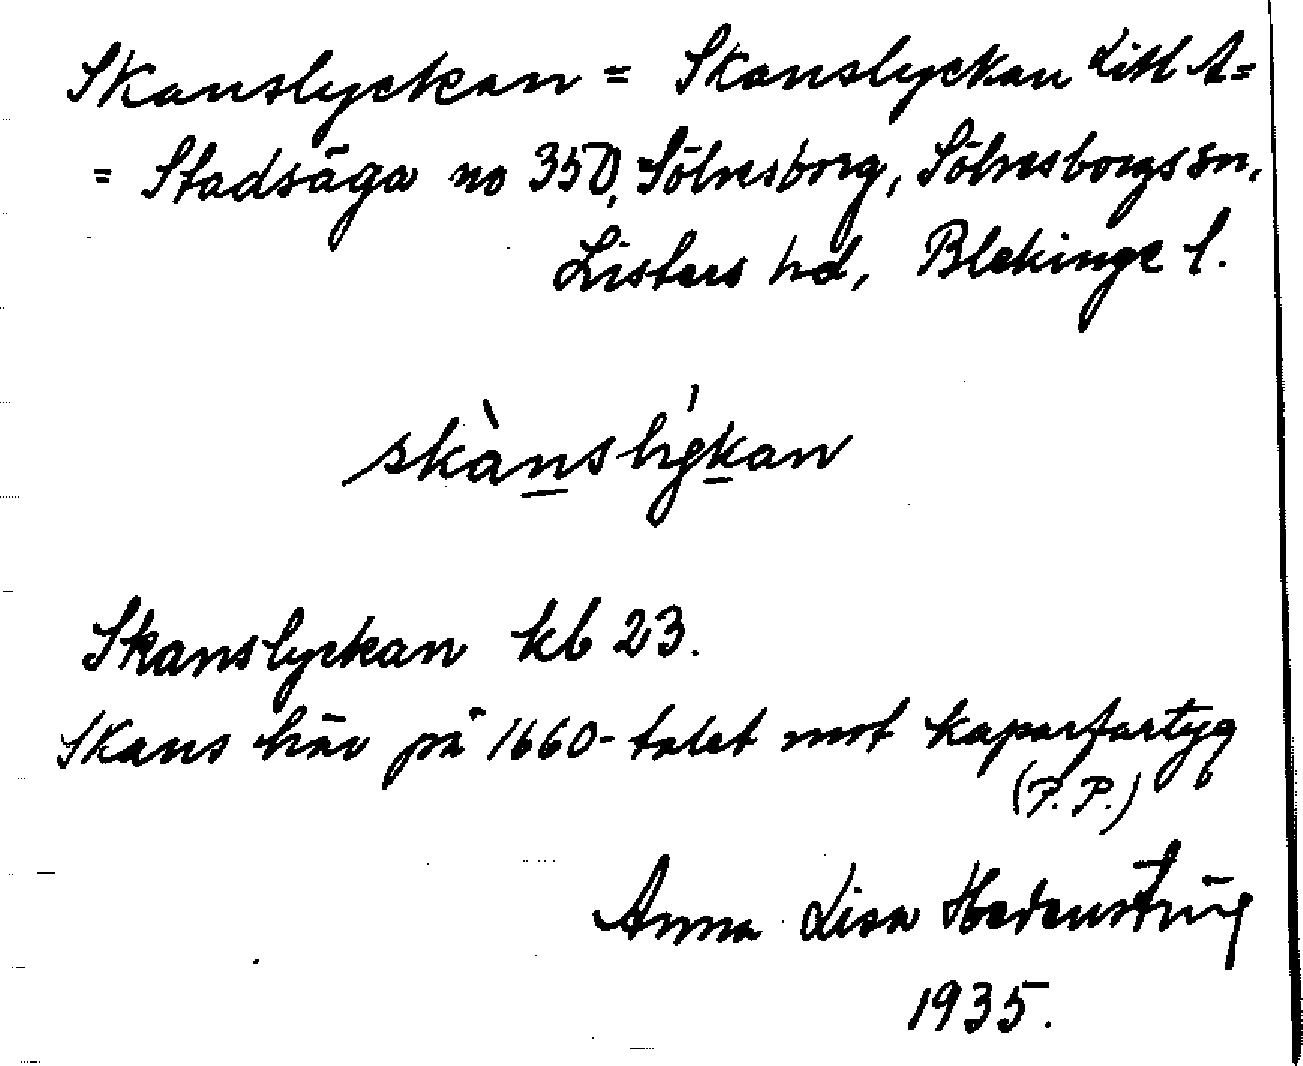 Skanslyckan = Skanslyckan Litt A =
= Stadsäga no 350, Sölvesborg, Sölvesborgs sn,
Listers hd, Blekinge l.
skànslýkan
Skanslyckan kb 23.
Skans här på 1660-talet mot kaparfartyg
(P.P.)
Anna Lisa Hedenström
1935.